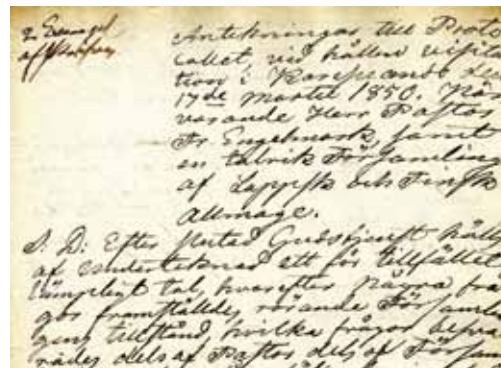 Antekningar till Proto
collet, vid hållen visita
tion i Karesuando den
17de Martii 1850. När
varande Herr Pastor
Fr. Engelmark, samt
en talrik Församling
af Lappsk och Finsk
allmoge.
S. D: Efter slutad Gudstjenst hölls
af undertecknad ett för tillfället
lämpligt tal, hvarefter några frå
gor framställdes, rörande Församlin
gens tillstånd, hvilka frågor besva
rades dels af Pastor dels af Försam